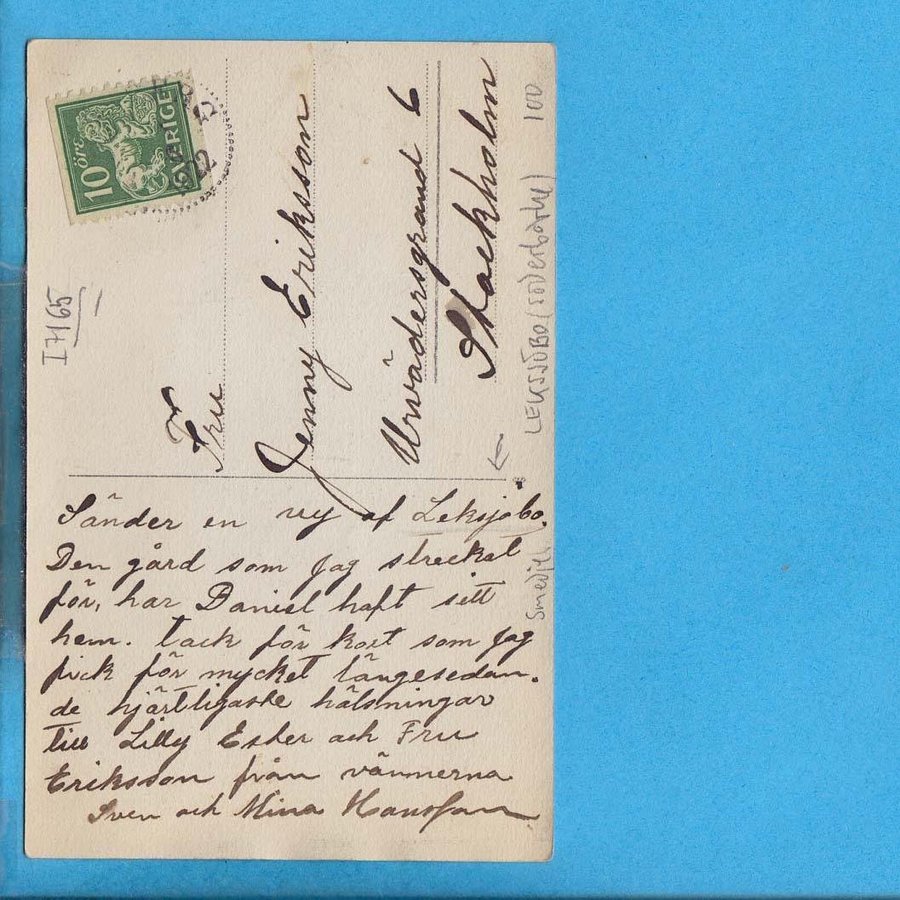 10 öre
SVERIGE
22
I7165
Fru
Jenny Eriksson
Urvädersgränd 6
Stockholm
LEKSJÖBO (SÖDERBÄRKE) 100
Sänder en vy af Leksjöbo.
Den gård som jag strecket
för, har Daniel haft sitt
hem. tack för kort som jag
fick för mycket längesedan.
de hjärtligaste hälsningar
till Lilly Ester och Fru
Eriksson från vännerna
Sven och Mina Hansson